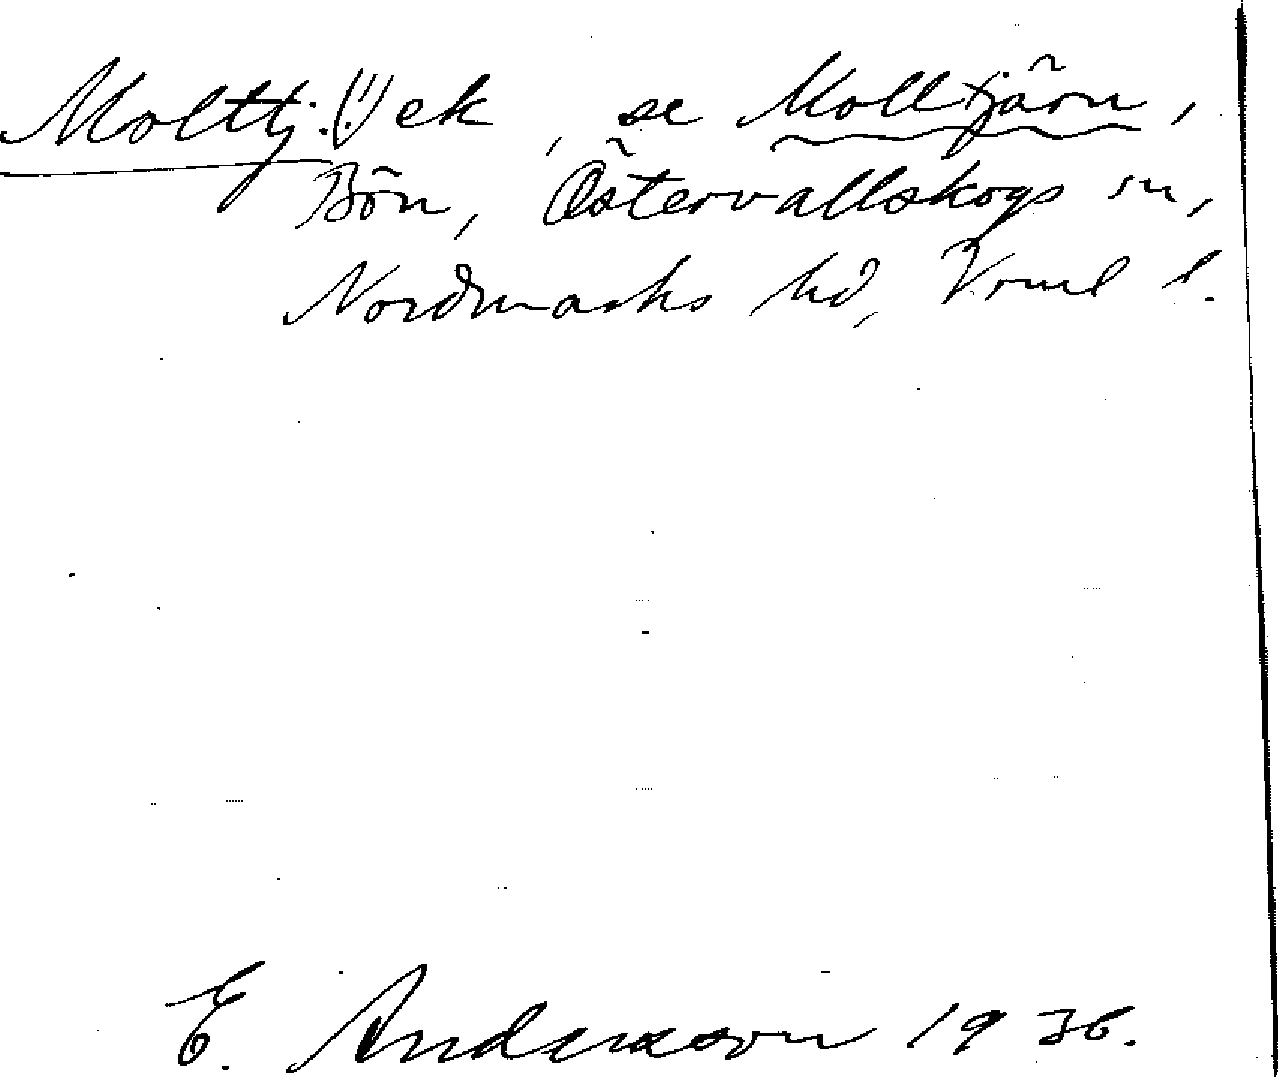 Molttj.(!) ek, se Molltjärn,
Bön, Östervallskogs sn,
Nordmarks hd, Vrml l.
E. Andersson 1936.